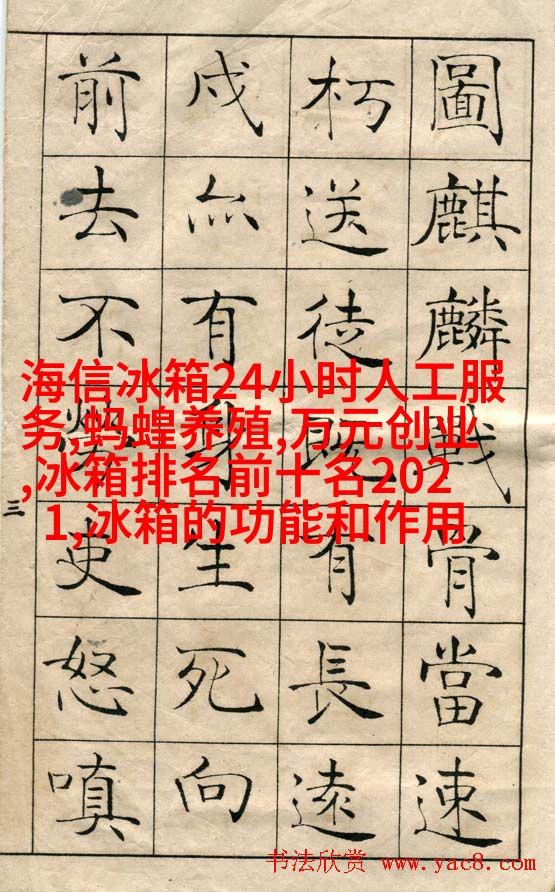 圖麒麟戰骨當速
朽送徒既有長遠
戍亦有身生死向
前去不勞吏怒嗔
三
海信冰箱24小时人工服
务,蚂蝗养殖,万元创业
,冰箱排名前十名202
1,冰箱的功能和作用
书法欣赏 www.yac8.com